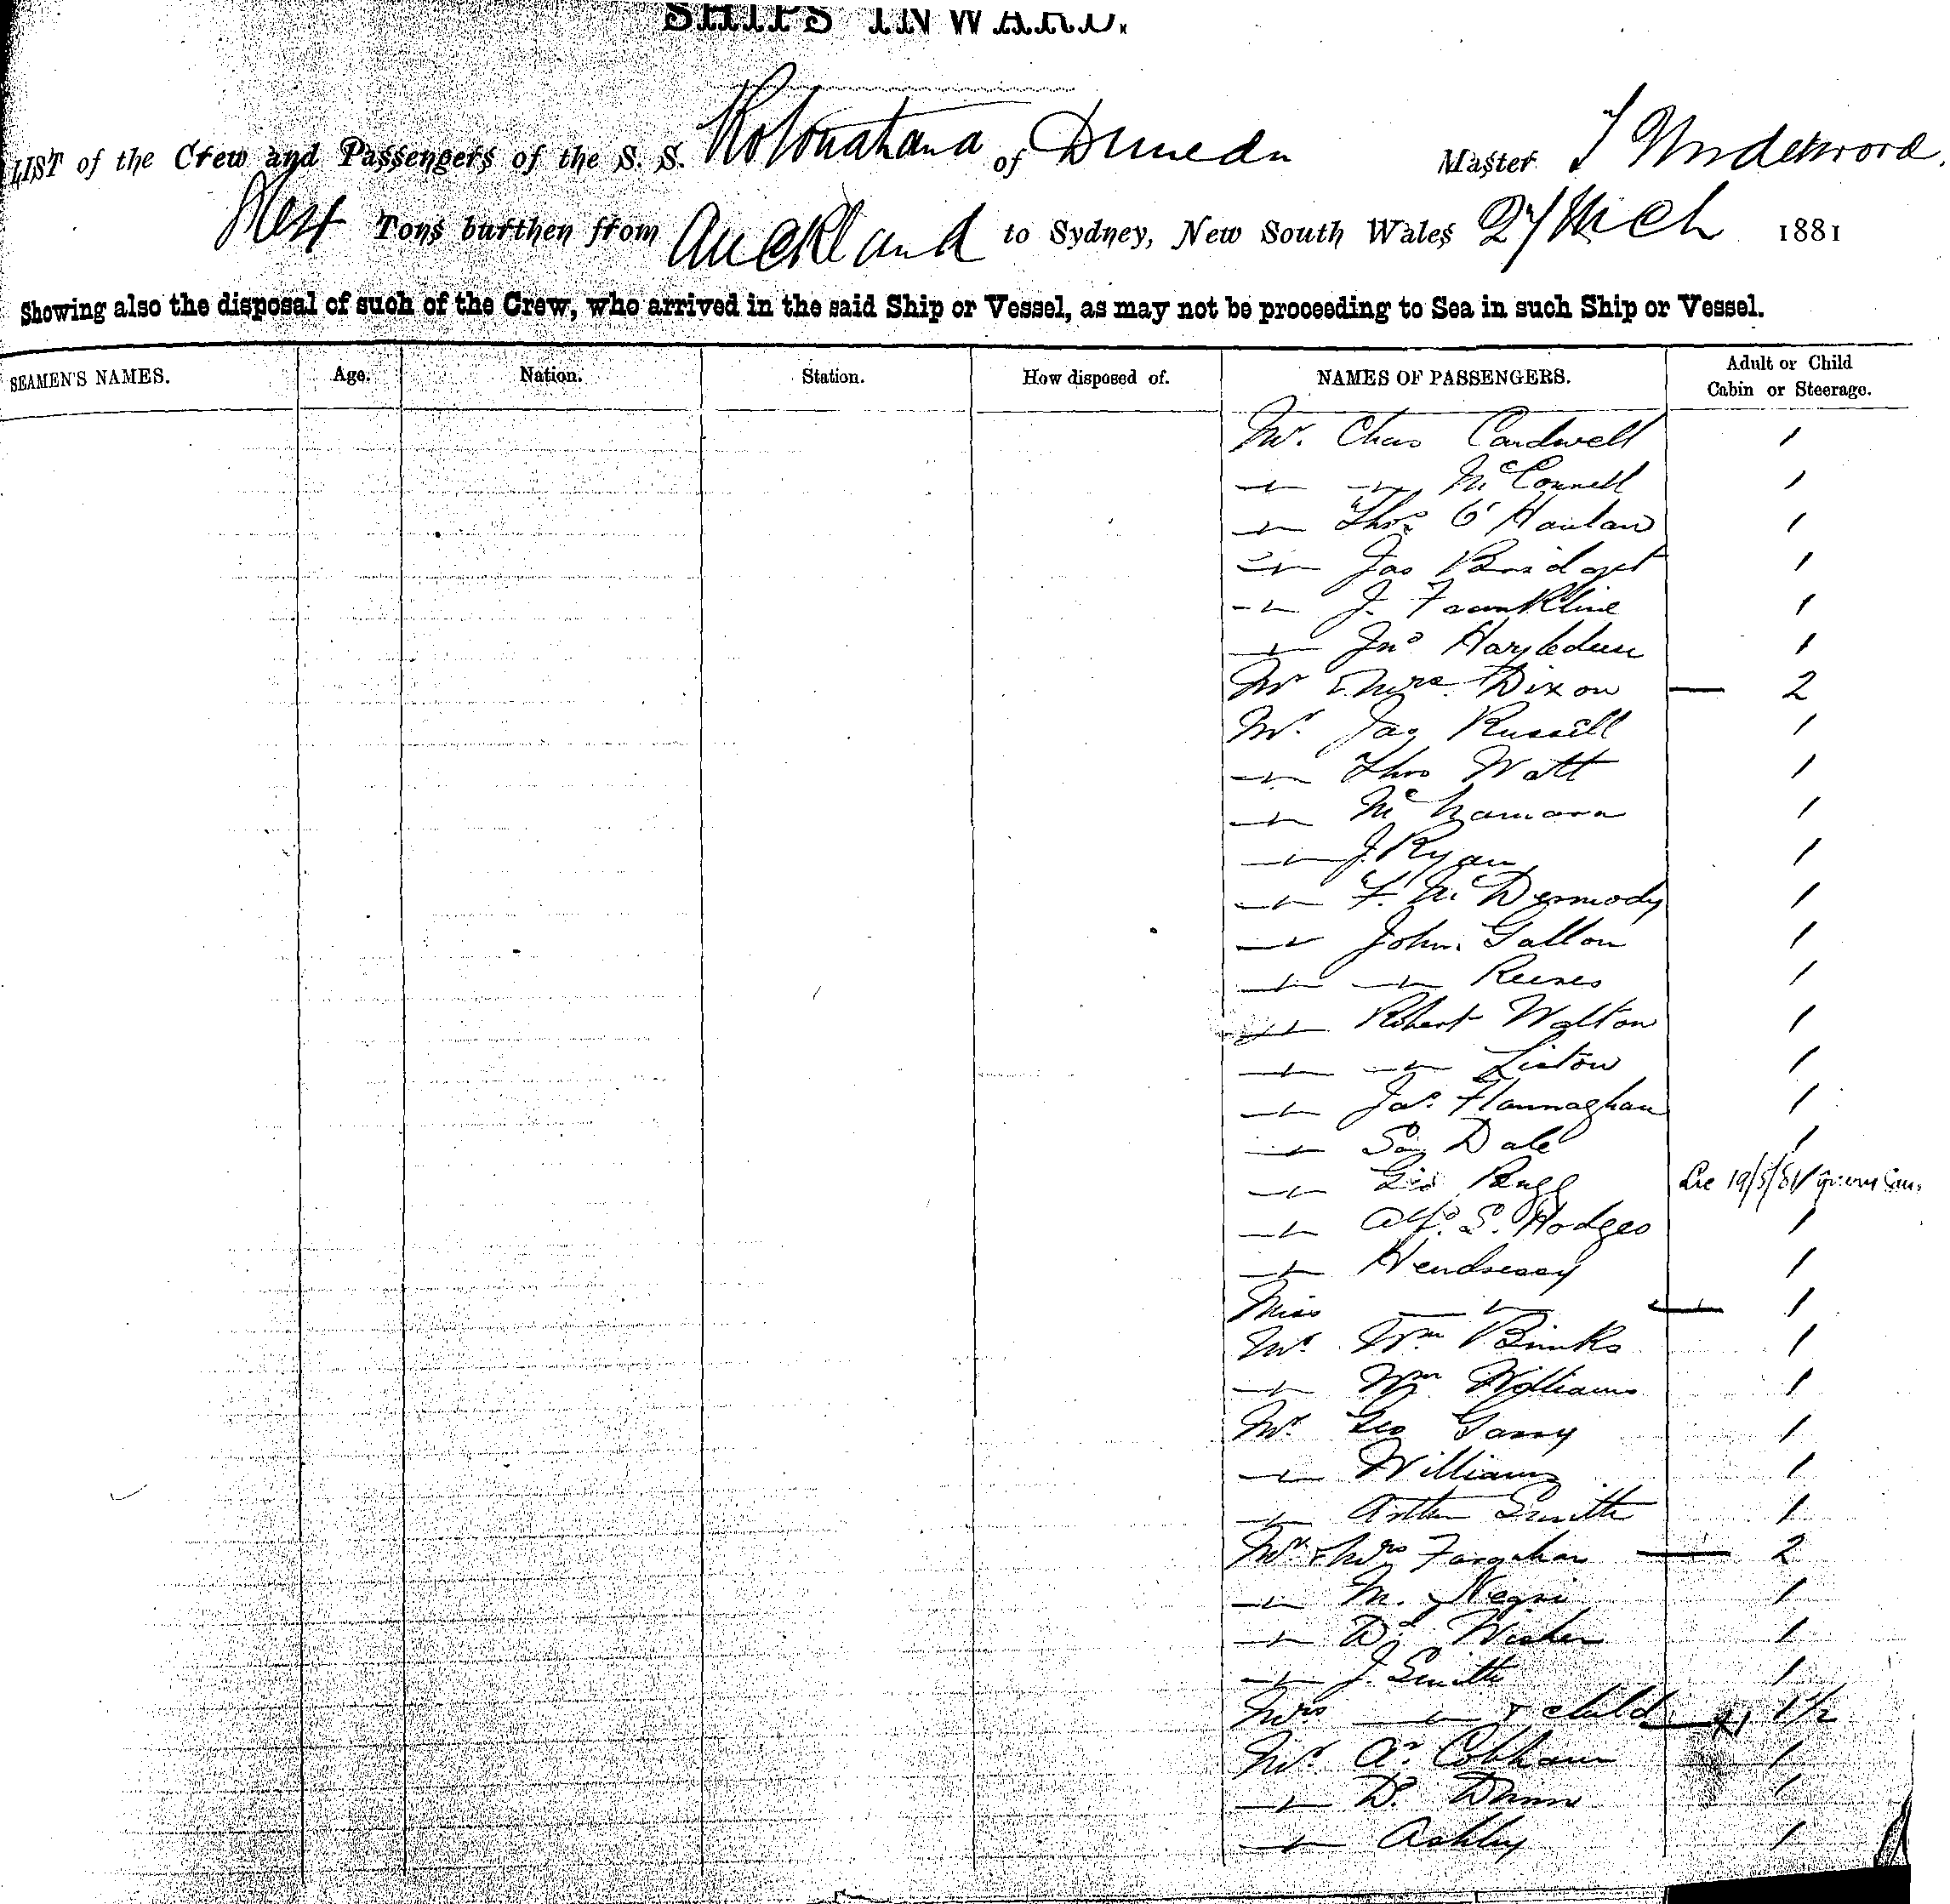 SHIPS INWARD.
LIST of the Crew and Passengers of the S. S. Rotomahana of Dunedin Master T Underwood,
Tons burthen from Auckland to Sydney, New South Wales 27 Mch 1881
Showing also the disposal of such of the Crew, who arrived in the said Ship or Vessel, as may not be proceeding to Sea in such Ship or Vessel.
SEAMEN'S NAMES. Age. Nation. Station. How disposed of. NAMES OF PASSENGERS. Adult or Child
Cabin or Steerage.
Mr. Chas Cardwell 1
McConnell 1
Thos O'Hanlan 1
Jas Bridget 1
J. Frankline 1
Jno 1
Mr & Mrs. Dixon — 2
Mr. Jas Russell 1
Thos Watt 1
McNamara 1
J. Ryan 1
F. McDermody 1
John Gallon 1
Reeves 1
Robert Walton 1
Liston 1
Jas. Flannaghan 1
Sam Dale 1
Geo 19/5/81
Alf. S. Hodges 1
1
Miss 1
Mr. Wm Binks 1
Wm Williams 1
Mr. Geo Garry 1
Williams 1
Arthur Smith 1
Mr & Mrs Farquhar — 2
M. Negri 1
1
J. Smith 1
Mrs & child 1½
Mr. A. Cobham 1
D. Dunn 1
Ashley 1